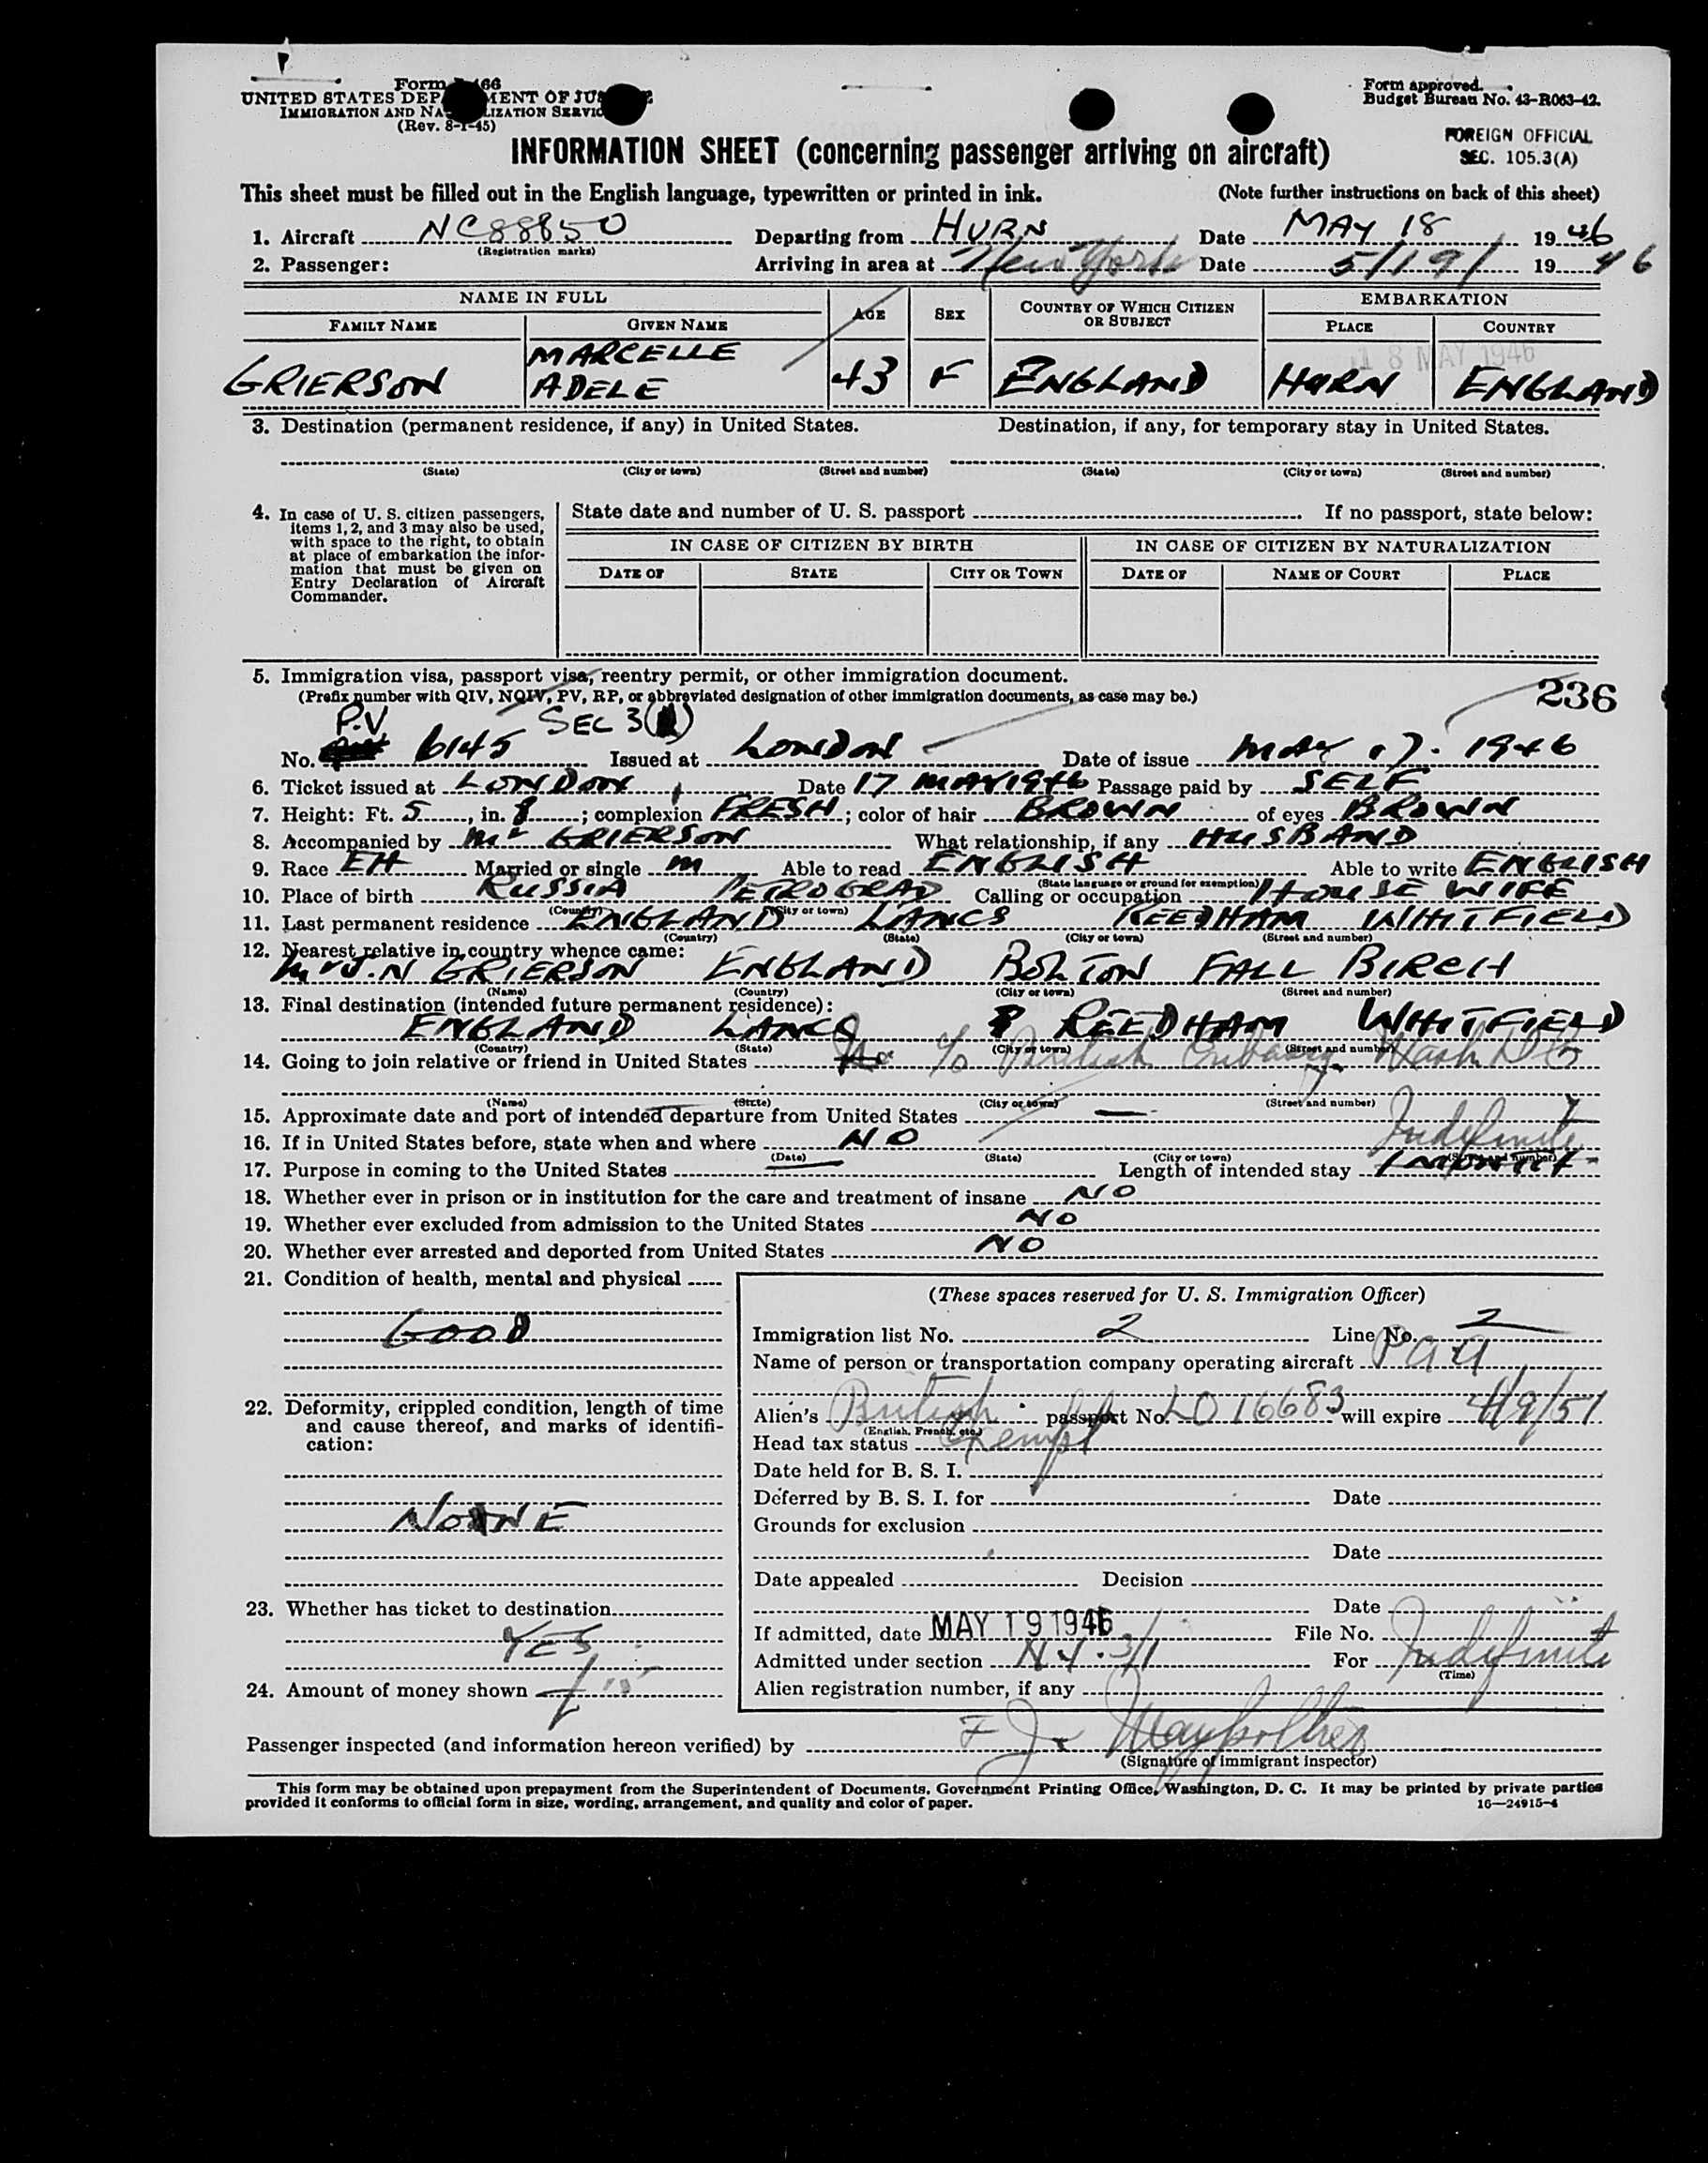 Form 466
UNITED STATES DEPARTMENT OF JUSTICE
IMMIGRATION AND NATURALIZATION SERVICE
(Rev. 8-1-45)
Form approved.
Budget Bureau No. 43-R063-42.
FOREIGN OFFICIAL
SEC. 105.3(A)
INFORMATION SHEET (concerning passenger arriving on aircraft)
This sheet must be filled out in the English language, typewritten or printed in ink. (Note further instructions on back of this sheet)
1. Aircraft NC88850 Departing from HURN Date MAY 18 1946
(Registration marks)
2. Passenger: Arriving in area at New York Date 5/19/ 1946
NAME IN FULL AGE SEX COUNTRY OF WHICH CITIZEN OR SUBJECT EMBARKATION
FAMILY NAME GIVEN NAME PLACE COUNTRY
18 MAY 1946
GRIERSON MARCELLE ADELE 43 F ENGLAND HURN ENGLAND
3. Destination (permanent residence, if any) in United States. Destination, if any, for temporary stay in United States.
(State) (City or town) (Street and number) (State) (City or town) (Street and number)
4. In case of U. S. citizen passengers, items 1, 2, and 3 may also be used, with space to the right, to obtain at place of embarkation the information that must be given on Entry Declaration of Aircraft Commander.
State date and number of U. S. passport If no passport, state below:
IN CASE OF CITIZEN BY BIRTH IN CASE OF CITIZEN BY NATURALIZATION
DATE OF STATE CITY OR TOWN DATE OF NAME OF COURT PLACE
5. Immigration visa, passport visa, reentry permit, or other immigration document.
(Prefix number with QIV, NQIV, PV, RP, or abbreviated designation of other immigration documents, as case may be.)
236
P.V SEC 3(1)
No. 6145 Issued at LONDON Date of issue MAY 17. 1946
6. Ticket issued at LONDON Date 17 MAY 1946 Passage paid by SELF
7. Height: Ft. 5, in. 8; complexion FRESH; color of hair BROWN of eyes BROWN
8. Accompanied by Mr GRIERSON What relationship, if any HUSBAND
9. Race EH Married or single M Able to read ENGLISH Able to write ENGLISH
(State language or ground for exemption)
10. Place of birth RUSSIA PETROGRAD Calling or occupation HOUSE WIFE
(Country) (City or town)
11. Last permanent residence ENGLAND LANCS REEDHAM WHITFIELD
(Country) (State) (City or town) (Street and number)
12. Nearest relative in country whence came:
Mr J.N GRIERSON ENGLAND BOLTON FALL BIRCH
(Name) (Country) (City or town) (Street and number)
13. Final destination (intended future permanent residence):
ENGLAND LANCS REEDHAM WHITFIELD
(Country) (State) (City or town) (Street and number)
14. Going to join relative or friend in United States c/o British Embassy Wash DC
(Name) (State) (City or town) (Street and number)
15. Approximate date and port of intended departure from United States —
16. If in United States before, state when and where NO Indefinite
(Date) (State) (City or town) (Street and number)
17. Purpose in coming to the United States — Length of intended stay 1 MONTH
18. Whether ever in prison or in institution for the care and treatment of insane NO
19. Whether ever excluded from admission to the United States NO
20. Whether ever arrested and deported from United States NO
21. Condition of health, mental and physical
GOOD
22. Deformity, crippled condition, length of time and cause thereof, and marks of identification:
NONE
23. Whether has ticket to destination
YES
24. Amount of money shown
(These spaces reserved for U. S. Immigration Officer)
Immigration list No. 2 Line No. 2
Name of person or transportation company operating aircraft PAA
Alien's British passport No. LO16683 will expire 4/9/51
(English, French, etc.)
Head tax status Exempt
Date held for B. S. I.
Deferred by B. S. I. for Date
Grounds for exclusion
Date
Date appealed Decision
Date
If admitted, date MAY 19 1946 File No.
Admitted under section N.Y. 3/1 For Indefinite
(Time)
Alien registration number, if any
Passenger inspected (and information hereon verified) by
(Signature of immigrant inspector)
This form may be obtained upon prepayment from the Superintendent of Documents, Government Printing Office, Washington, D. C. It may be printed by private parties
provided it conforms to official form in size, wording, arrangement, and quality and color of paper. 16—24915-4